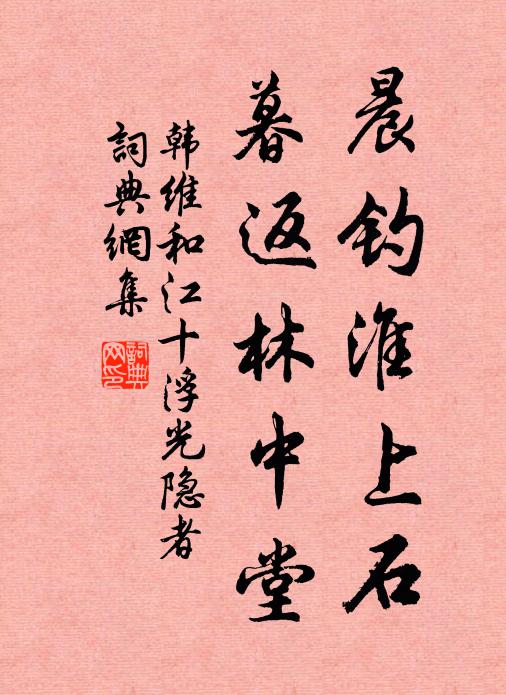 晨钓淮上石
暮返林中堂
韩维和江十浮光隐者
詞典網集
詞典网印